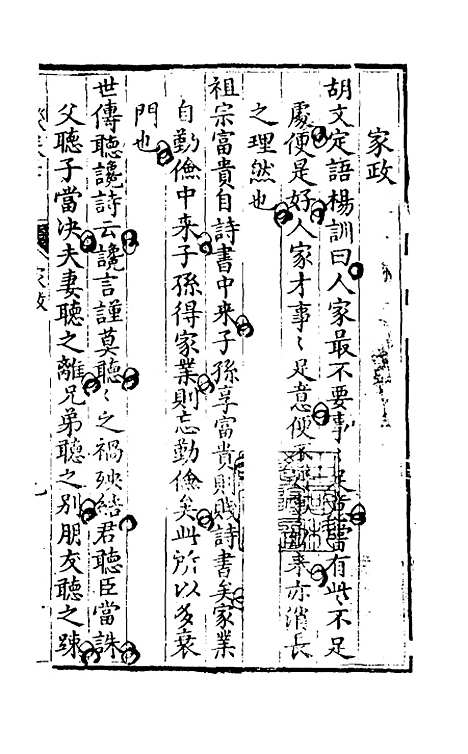 家政
胡文定語楊訓曰人家最不要事〻足意常有些不足
處便是好人家才事〻足意便不好事出來亦消長
之理然也
祖宗富貴自詩書中来子孫享富貴則賤詩書矣家業
自勤儉中来子孫得家業則忘勤儉矣此所以多衰
門也
世傳聽讒詩云讒言謹莫聽〻之禍殃結君聽臣當誅
父聽子當决夫妻聽之離兄弟聽之别朋友聽之踈
家政